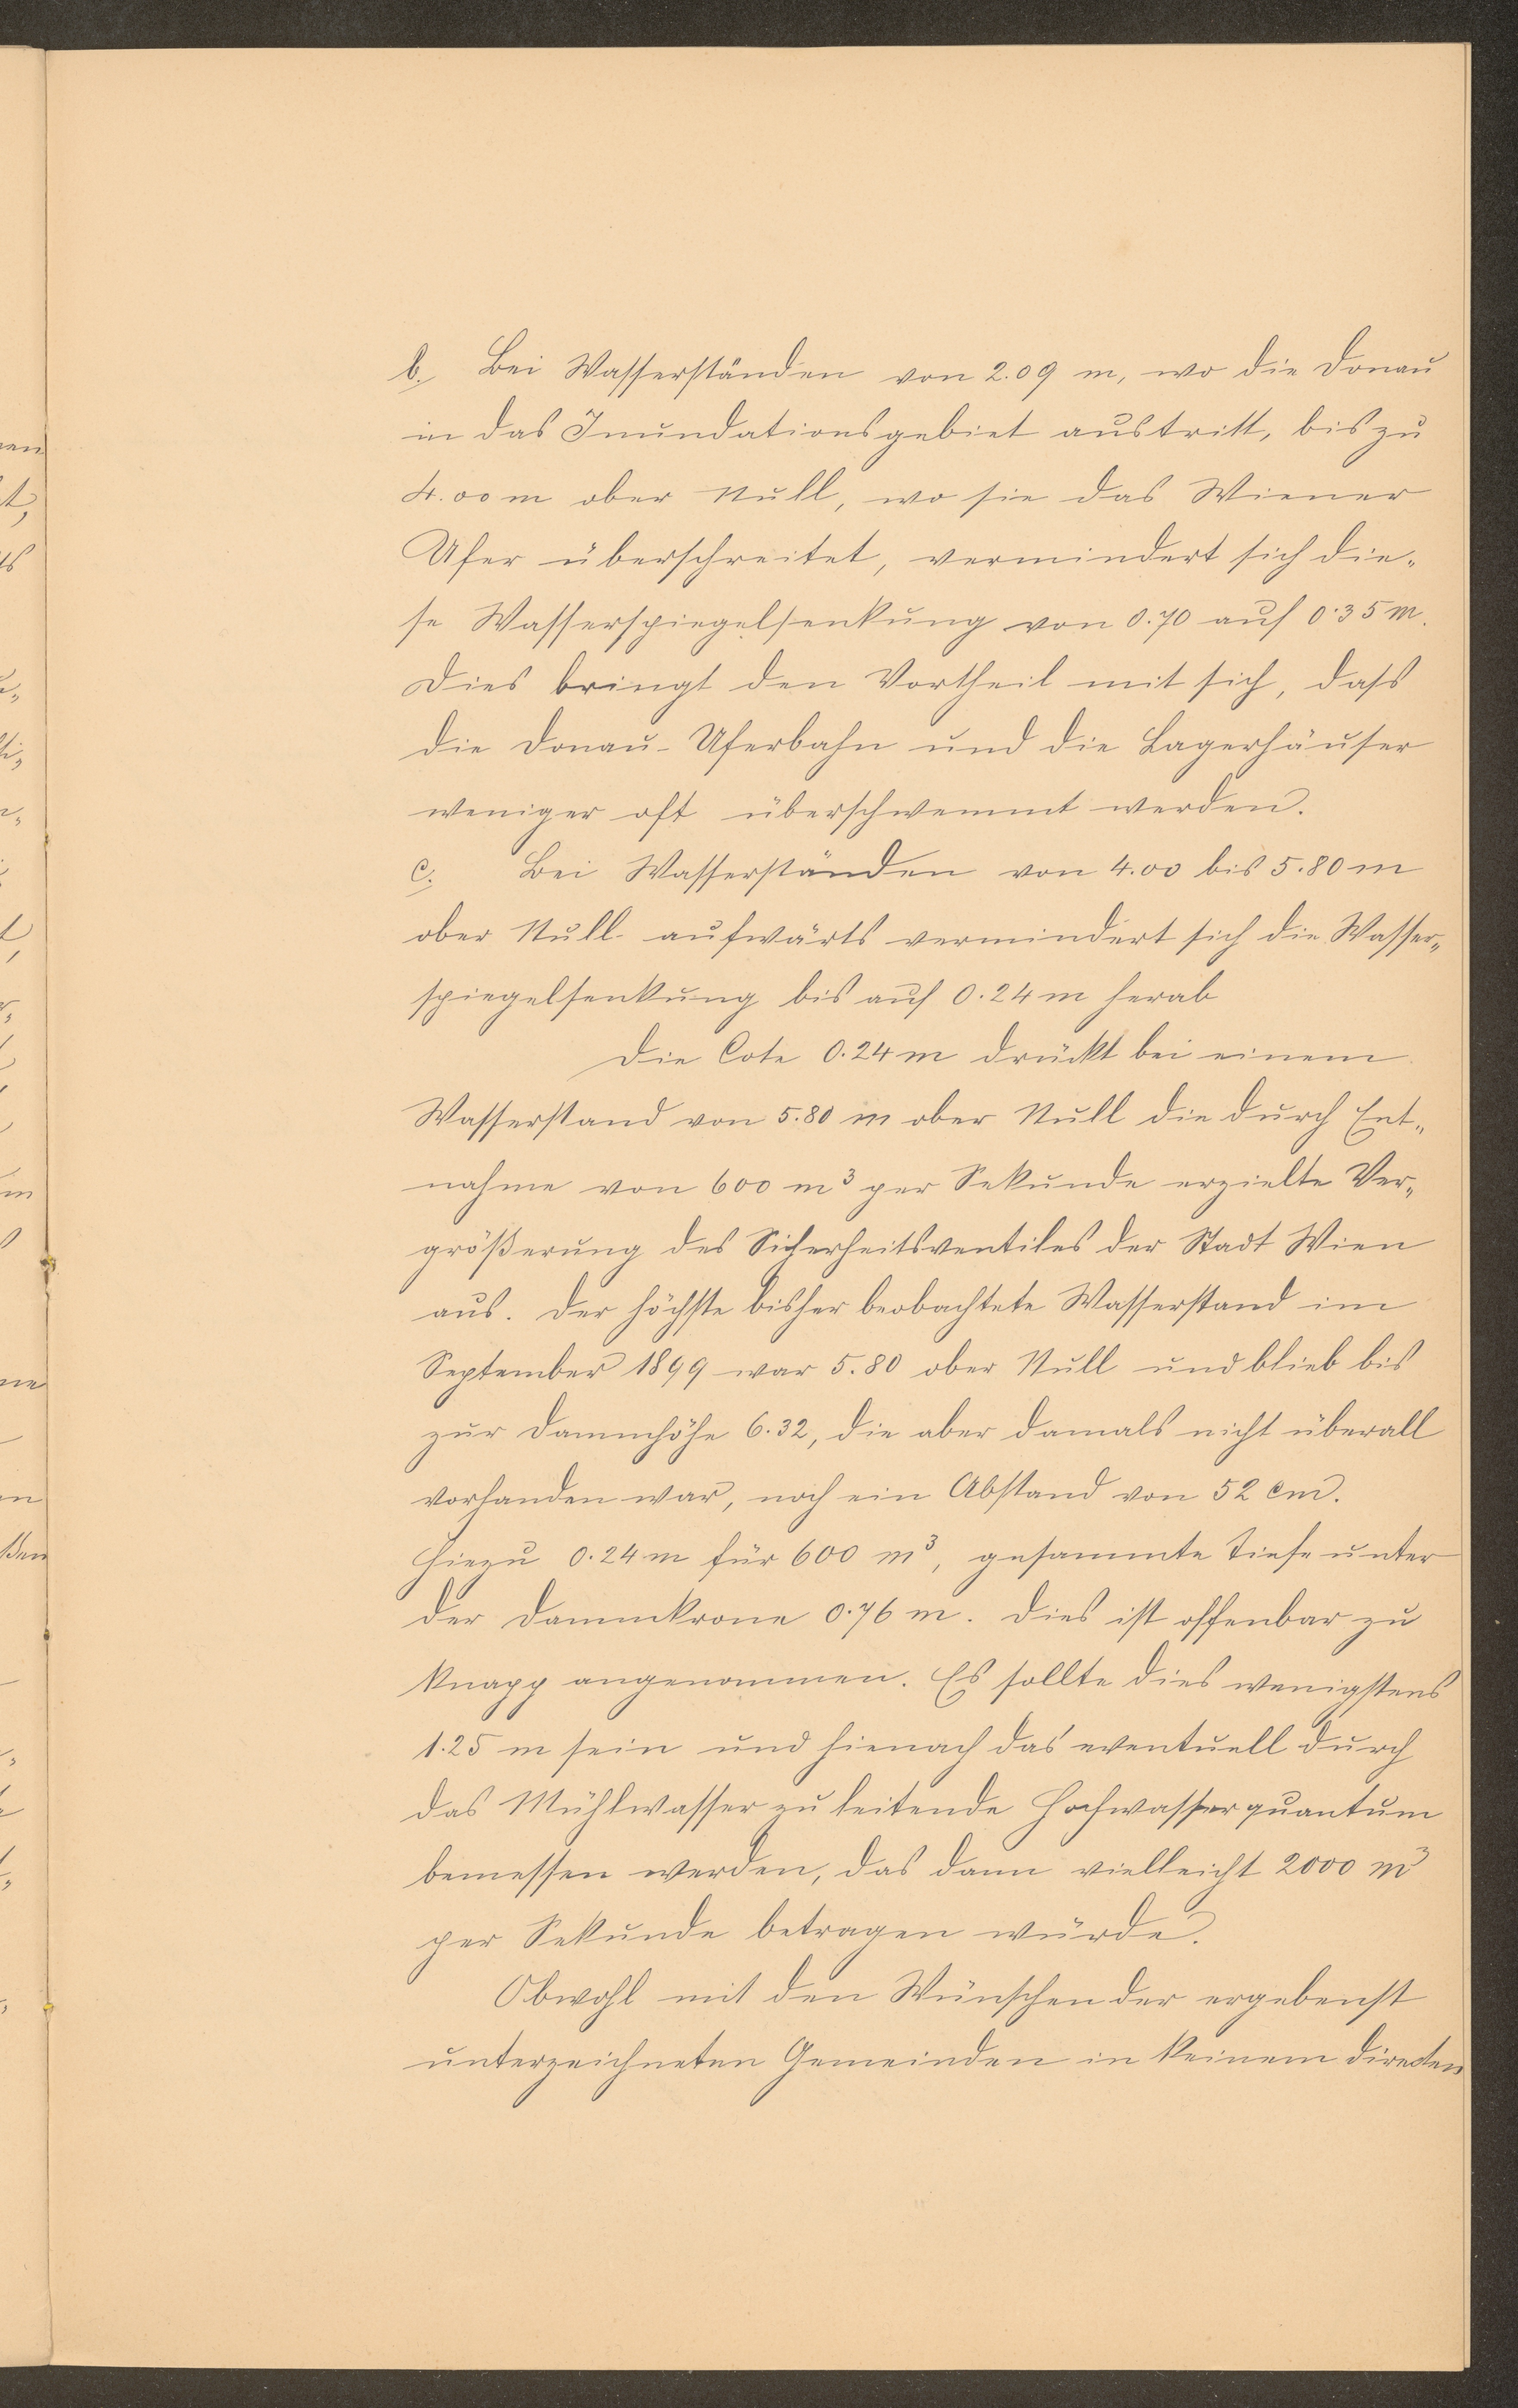 b. Bei Wasserständen von 2.09 m, wo die Donau
in das Inundationsgebiet austritt, bis zu
4.00 m ober Null, wo sie das Wiener
Ufer überschreitet, vermindert sich die-
se Wasserspiegelsenkung von 0.70 auf 0.35 m.
Dies bringt den Vortheil mit sich, dass
die Donau-Uferbahn und die Lagerhäuser
weniger oft überschwemmt werden.
c. Bei Wasserständen von 4.00 bis 5.80 m
ober Null aufwärts vermindert sich die Wasser-
spiegelsenkung bis auf 0.24 m herab
Die Cote 0.24 m drückt bei einem
Wasserstand von 5.80 m ober Null die durch Ent-
nahme von 600 m³ per Sekunde erzielte Ver-
größerung des Sicherheitsventiles der Stadt Wien
aus. Der höchste bisher beobachtete Wasserstand im
September 1899 war 5.80 ober Null und blieb bis
zur Dammhöhe 6.32, die aber damals nicht überall
vorhanden war, noch ein Abstand von 52 cm.
Hiezu 0.24 m für 600 m³, gesammte Tiefe unter
der Dammkrone 0.76 m. Dies ist offenbar zu
knapp angenommen. Es sollte dies wenigstens
1.25 m sein und hienach das eventuell durch
das Mühlwasser zu leitende Hochwasserquantum
bemessen werden, das dann vielleicht 2000 m³
per Sekunde betragen würde.
Obwohl mit den Wünschen der ergebenst
unterzeichneten Gemeinden in keinem directen